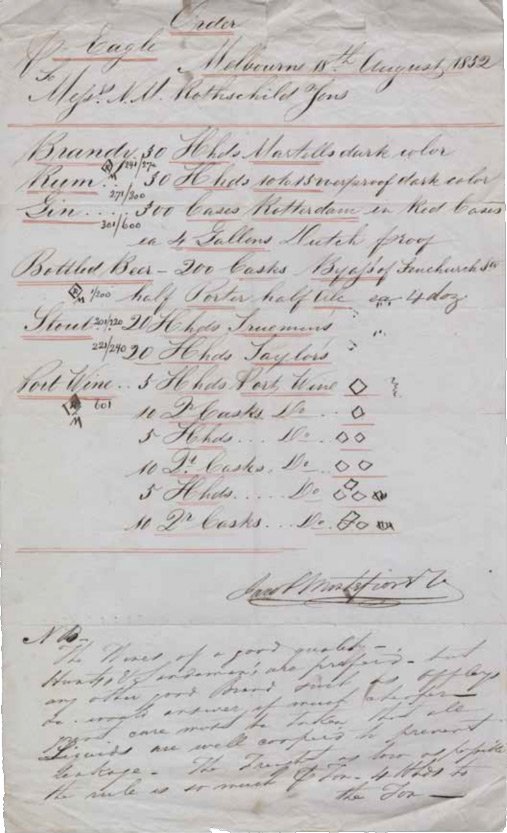 Order
pr Eagle Melbourne 18th August, 1852
To Messrs N. M. Rothschild Sons
Brandy. 30 Hhds Martells dark color
241/270
Rum .. 30 Hhds 10 to 15 overproof dark color
271/300
Gin .... 300 Cases Rotterdam in Red Cases
301/600
ea 4 Gallons Dutch proof
Bottled Beer - 200 Casks Byass of Fenchurch St
1/200 half Porter half Ale ea 4 doz
Stout 201/220 20 Hhds Truemans
221/240 20 Hhds Taylor's
Port Wine .. 5 Hhds Port Wine
601
10 Qr Casks Do ..
5 Hhds ... Do ..
10 Qr Casks. Do ..
5 Hhds ..... Do
10 Qr Casks ... Do ..
NB -
The Wines of a good quality -
Hunts & Sandeman's are prefered - but
any other good Brand such as Offleys
&c. would answer if much cheaper -
great care must be taken that all
Liquids are well coopered to prevent
leakage - The Freight as low as possible
the rule is so much pr Ton - 4 Hhds to
the Ton -